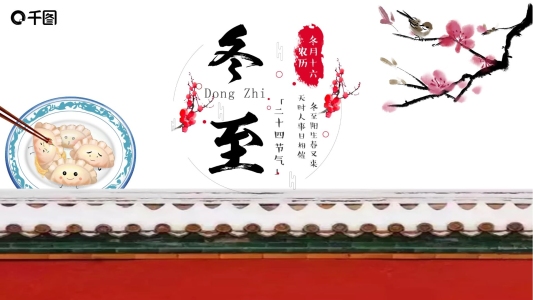 千图
冬至
Dong Zhi
「二十四节气」
农历
冬月十六
冬至阳生春又来
天时人事日相催